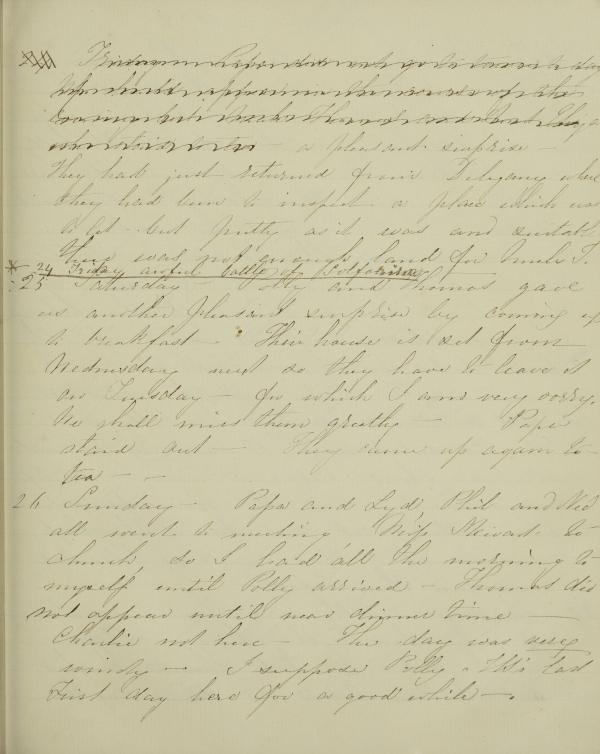 a pleasant surprise —
They had just returned from Delgany where
they had been to inspect a place which was
to let — but pretty as it was and suitable
there was not enough land for Uncle T.
* 24 Friday awful battle of Solferino
25 Saturday — Polly and Thomas gave
us another pleasant surprise by coming up
to breakfast — Their house is set from
Wednesday next so they have to leave it
on Tuesday — for which I am very sorry.
We shall miss them greatly — Papa
staid out — They came up again to
tea — —
26 Sunday — Papa and Lyd, Phil and Ned
all went to meeting Miss Stewart to
church, so I had all the morning to
myself until Polly arrived — Thomas did
not appear until near dinner time —
Charlie not here — The day was very
windy — I suppose Polly & Th's last
First day here for a good while — .